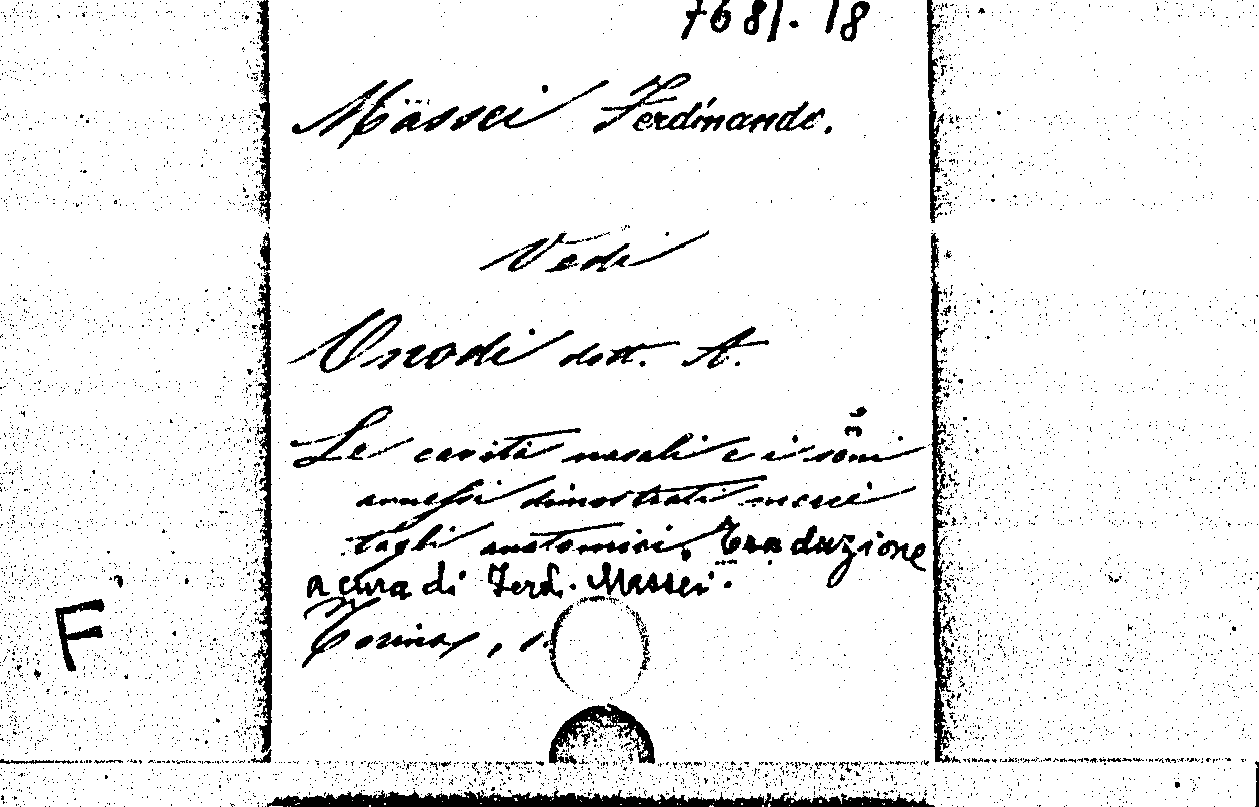 7681. 18
Massei Ferdinando.
Vedi
Onodi dott. A.
Le cavità nasali e i seni
annessi dimostrati mercè
tagli anatomici. Traduzione
a cura di Ferd. Massei.
Torino,
F